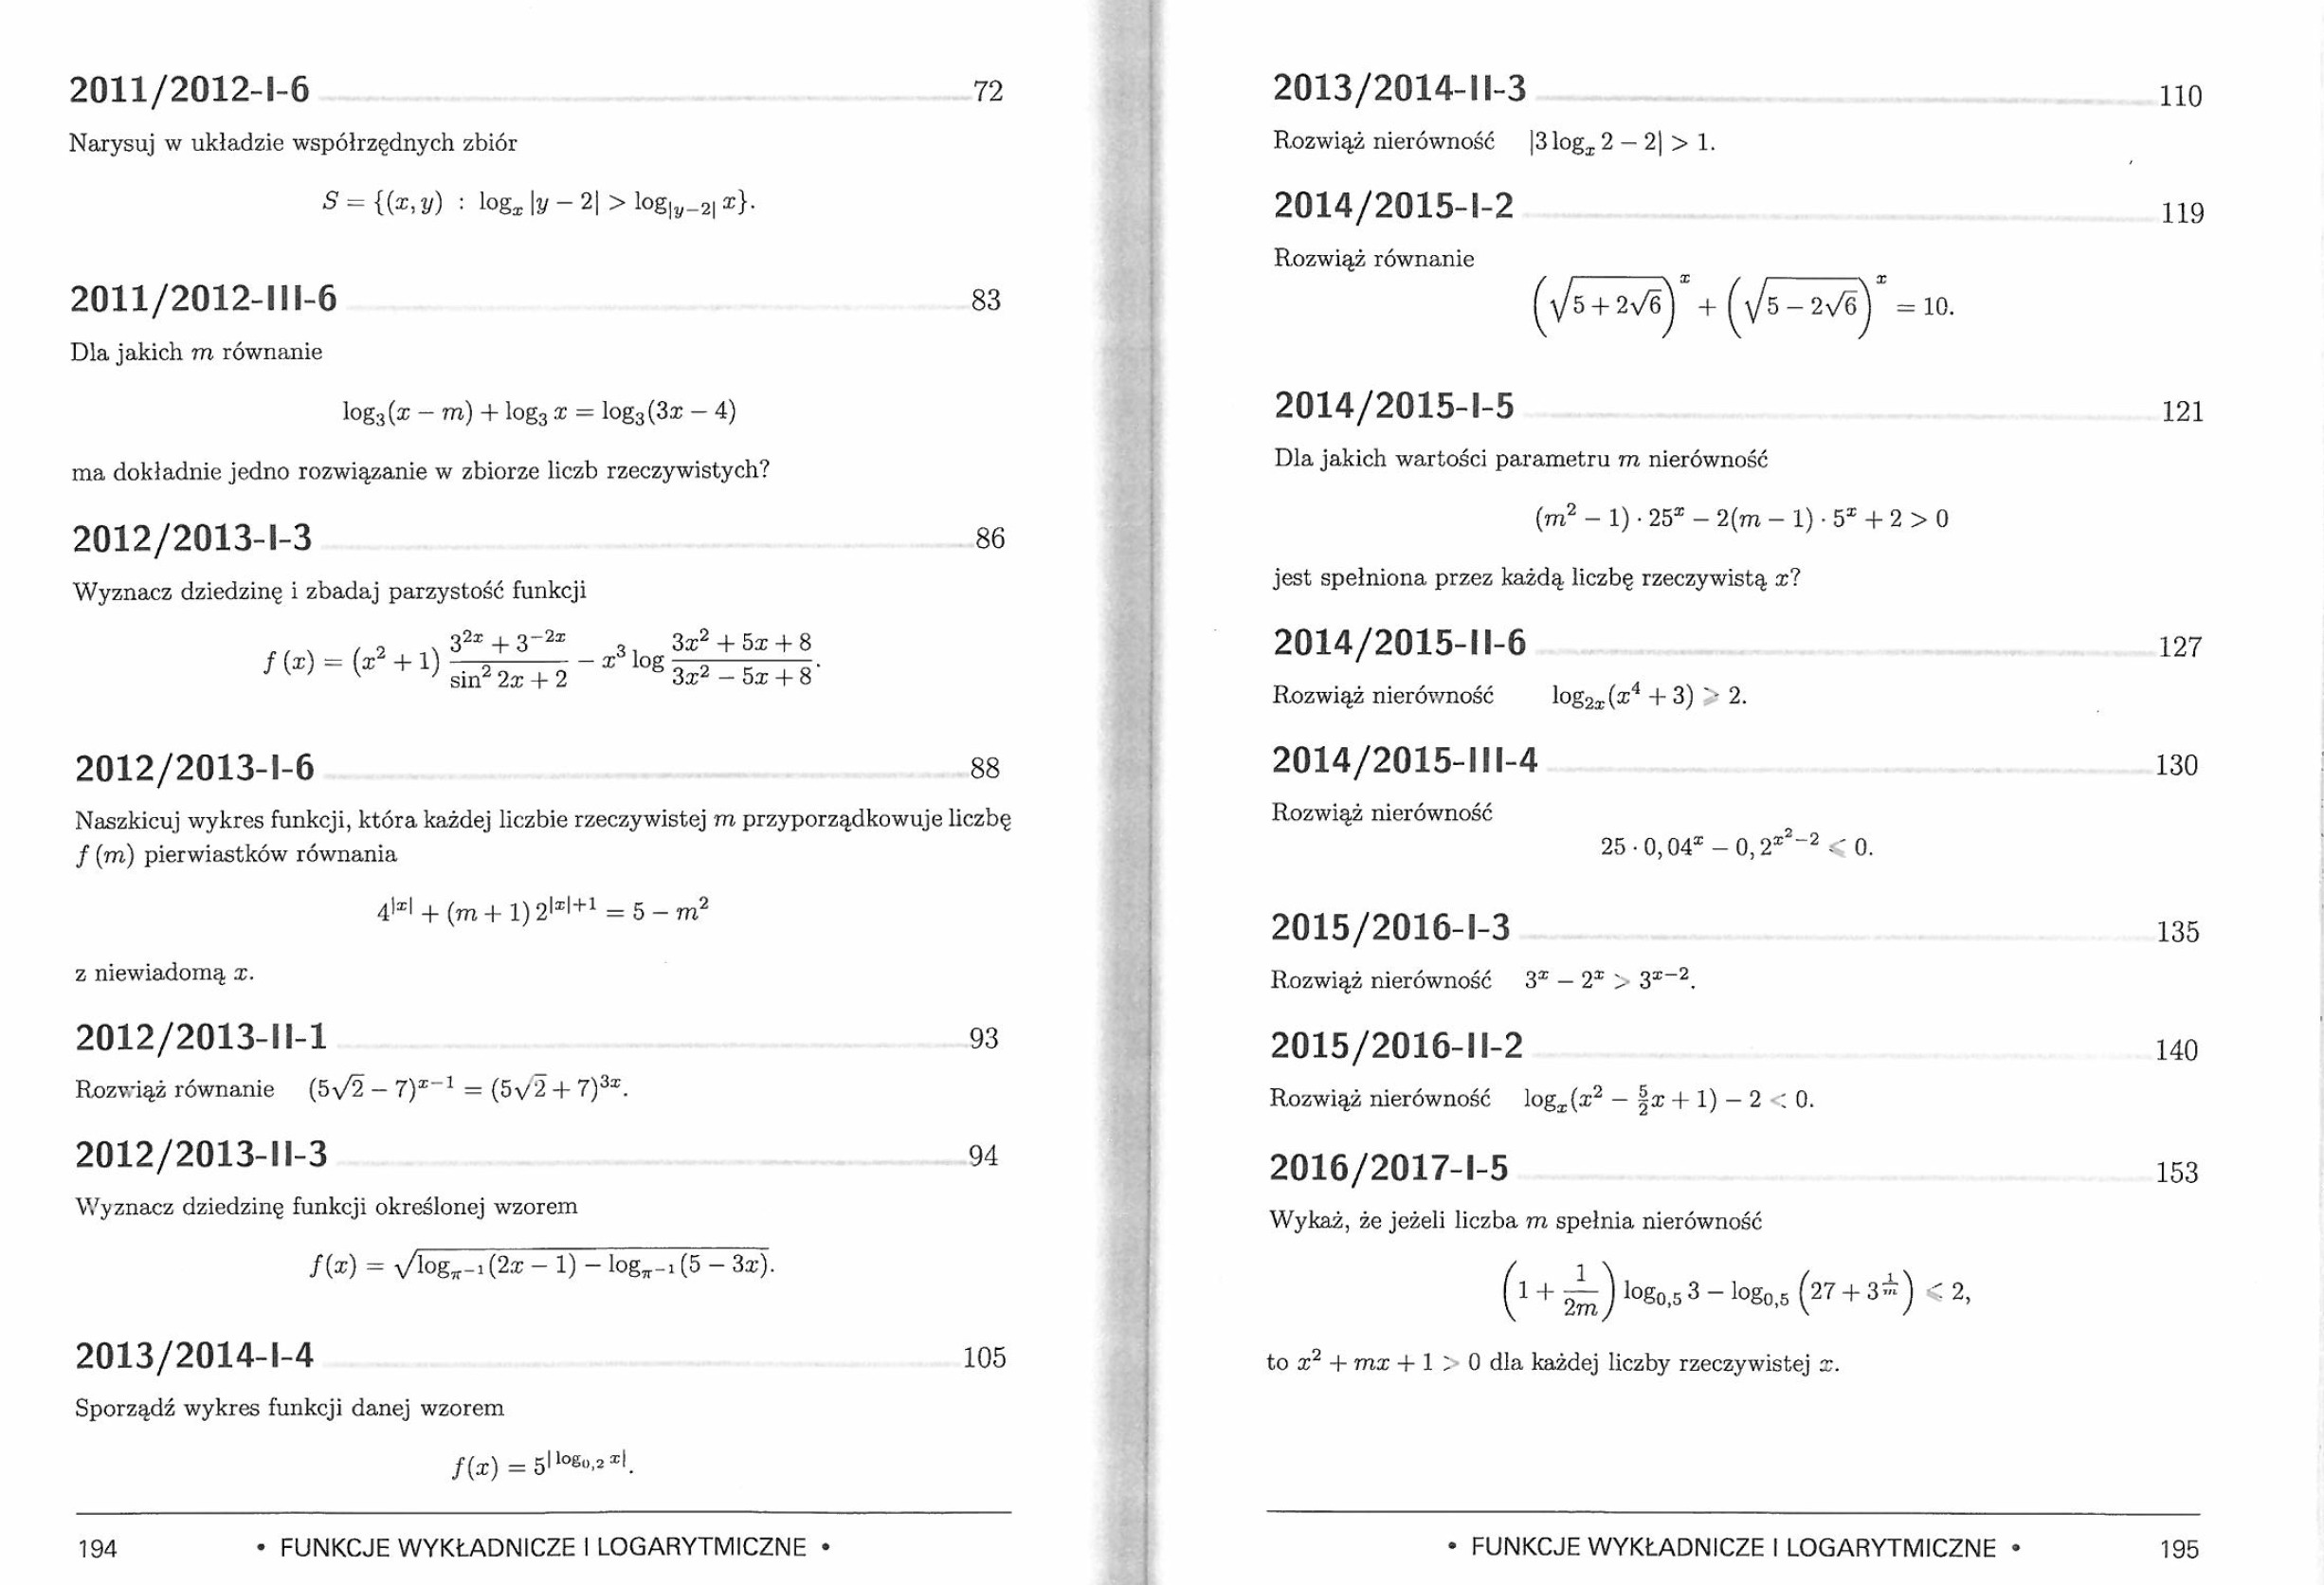 2011/2012-I-6 72
Narysuj w układzie współrzędnych zbiór
S = {(x, y) : logₓ |y − 2| > log_{|y−2|} x}.
2011/2012-III-6 83
Dla jakich m równanie
log₃(x − m) + log₃ x = log₃(3x − 4)
ma dokładnie jedno rozwiązanie w zbiorze liczb rzeczywistych?
2012/2013-I-3 86
Wyznacz dziedzinę i zbadaj parzystość funkcji
f (x) = (x² + 1) \frac{3^{2x} + 3^{−2x}}{sin² 2x + 2} − x³ log \frac{3x² + 5x + 8}{3x² − 5x + 8}.
2012/2013-I-6 88
Naszkicuj wykres funkcji, która każdej liczbie rzeczywistej m przyporządkowuje liczbę
f (m) pierwiastków równania
4^{|x|} + (m + 1) 2^{|x|+1} = 5 − m²
z niewiadomą x.
2012/2013-II-1 93
Rozwiąż równanie (5√2 − 7)^{x−1} = (5√2 + 7)^{3x}.
2012/2013-II-3 94
Wyznacz dziedzinę funkcji określonej wzorem
f(x) = \sqrt{log_{π^{−1}}(2x − 1) − log_{π^{−1}}(5 − 3x)}.
2013/2014-I-4 105
Sporządź wykres funkcji danej wzorem
f(x) = 5^{| log_{0,2} x|}.
194 • FUNKCJE WYKŁADNICZE I LOGARYTMICZNE •
2013/2014-II-3 110
Rozwiąż nierówność |3 logₓ 2 − 2| > 1.
2014/2015-I-2 119
Rozwiąż równanie
(\sqrt{5 + 2√6})^x + (\sqrt{5 − 2√6})^x = 10.
2014/2015-I-5 121
Dla jakich wartości parametru m nierówność
(m² − 1) · 25^x − 2(m − 1) · 5^x + 2 > 0
jest spełniona przez każdą liczbę rzeczywistą x?
2014/2015-II-6 127
Rozwiąż nierówność log_{2x}(x⁴ + 3) ⩾ 2.
2014/2015-III-4 130
Rozwiąż nierówność
25 · 0,04^x − 0,2^{x²−2} ⩽ 0.
2015/2016-I-3 135
Rozwiąż nierówność 3^x − 2^x > 3^{x−2}.
2015/2016-II-2 140
Rozwiąż nierówność logₓ(x² − \frac{5}{2}x + 1) − 2 < 0.
2016/2017-I-5 153
Wykaż, że jeżeli liczba m spełnia nierówność
(1 + \frac{1}{2m}) log_{0,5} 3 − log_{0,5} (27 + 3^{\frac{1}{m}}) ⩽ 2,
to x² + mx + 1 > 0 dla każdej liczby rzeczywistej x.
• FUNKCJE WYKŁADNICZE I LOGARYTMICZNE • 195